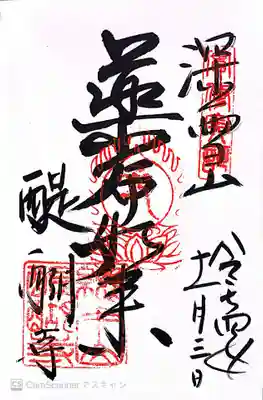 深雪山
令和四年
十一月三日
薬師如来
醍醐寺
CS CamScanner でスキャン